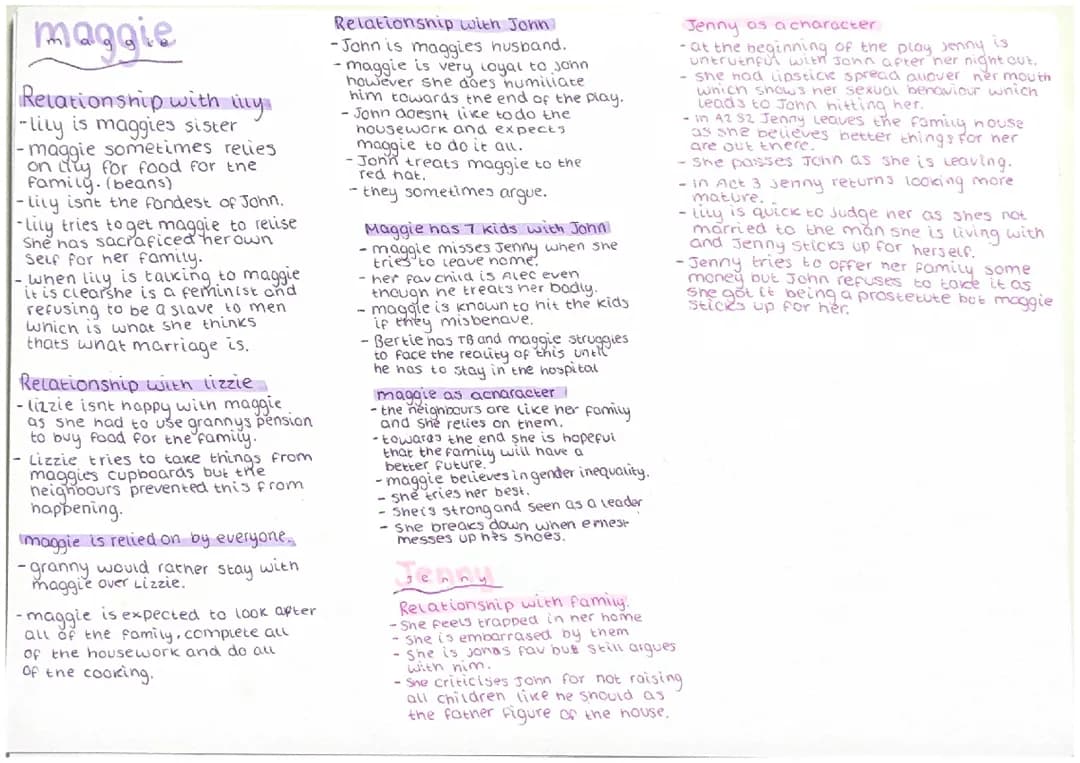 maggie
maggie
Relationship with lily
-lily is maggies sister
-maggie sometimes relies
on lily for food for the
family. (beans)
-lily isnt the fondest of John.
-lily tries to get maggie to relise
she has sacraficed her own
self for her family.
- when lily is talking to maggie
it is clear she is a feminist and
refusing to be a slave to men
which is what she thinks
thats what marriage is.
Relationship with lizzie
-lizzie isnt happy with maggie
as she had to use grannys pension
to buy food for the family.
- Lizzie tries to take things from
maggies cupboards but the
neighbours prevented this from
happening.
maggie is relied on by everyone.
-granny would rather stay with
maggie over Lizzie.
-maggie is expected to look after
all of the family, complete all
of the housework and do all
of the cooking.
Relationship with John
-John is maggies husband.
-maggie is very loyal to John
however she does humiliate
him towards the end of the play.
- John doesnt like to do the
housework and expects
maggie to do it all.
- John treats maggie to the
red hat.
- they sometimes argue.
Maggie has 7 kids with John
- maggie misses Jenny when she
tries to leave home.
- her fav child is Alec even
though he treats her badly.
- maggie is known to hit the kids
if they misbehave.
- Bertie has TB and maggie struggies
to face the reality of this until
he has to stay in the hospital
maggie as a character
- the neighbours are like her family
and she relies on them.
-towards the end she is hopeful
that the family will have a
better future.
-maggie believes in gender inequality.
- she tries her best.
- she is strong and seen as a leader
- she breaks down when ernest
messes up his shoes.
Jenny
Jenny
Relationship with family.
- She feels trapped in her home
- She is embarrased by them
- She is Johns fav but still argues
with him.
- She criticises John for not raising
all children like he should as
the father figure of the house.
Jenny as a character
- at the beginning of the play Jenny is
untruthful with John after her night out.
- she had lipstick spread all over her mouth
which shows her sexual behaviour which
leads to John hitting her.
- in A2 S2 Jenny leaves the family house
as she believes better things for her
are out there.
- she passes John as she is leaving.
- in Act 3 Jenny returns looking more
mature.
- lily is quick to judge her as shes not
married to the man she is living with
and Jenny sticks up for herself.
- Jenny tries to offer her family some
money but John refuses to take it as
she got it being a prostetute but maggie
sticks up for her.